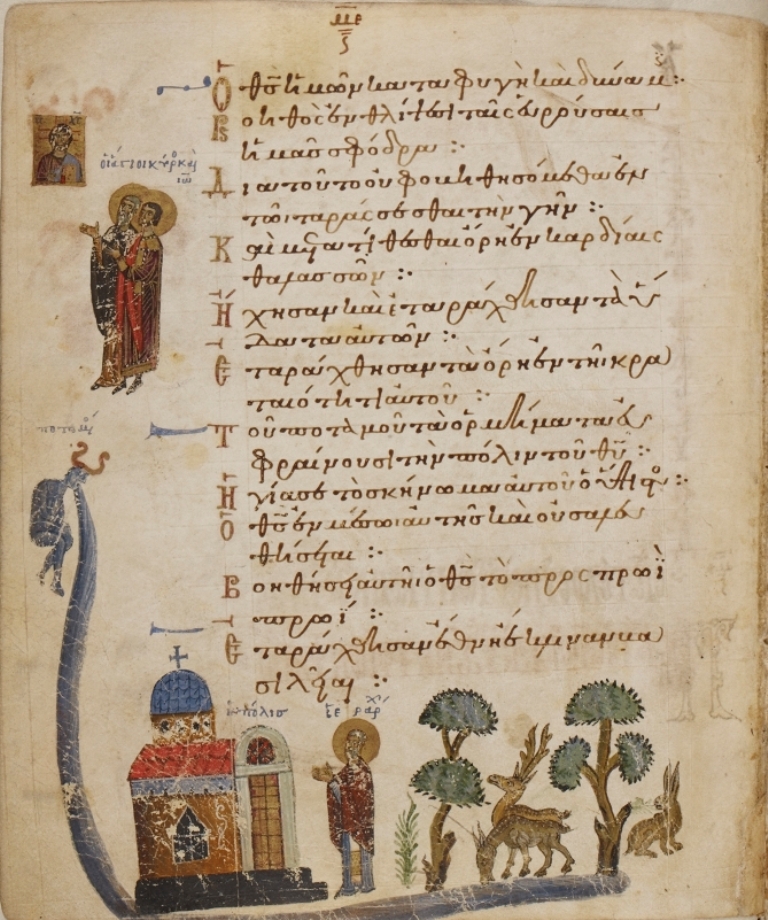 Ὁ θς ἡμῶν καταφυγὴ καὶ δύναμι:·
Βοηθὸς ἐν θλίψεσι ταῖς εὑρούσαις
ἡμᾶς σφόδρα :·
Διατοῦτο οὐ φοβηθησόμεθα ἐν
τῶι ταράσσεσθαι τὴν γῆν :·
Καὶ μετατίθεσθαι ὄρη ἐν καρδίαις
θαλασσῶν :·
Ἤχησαν καὶ ἐταράχθησαν τὰ ὕ
δατα αὐτῶν :·
Ἐταράχθησαν τὰ ὄρη ἐν τῆι κρα
ταιότητι αὐτοῦ :·
Τοῦ ποταμοῦ τὰ ὁρμήματα εὐ
φραίνουσι τὴν πόλιν τοῦ θυ :·
Ἡγίασε τὸ σκήνωμα αὐτοῦ ὁ ὕψι :·
Ὁ θς ἐν μέσωι αὐτῆς καὶ οὐ σαλευ
θήσεται :·
Βοηθήσει αὐτῆι ὁ θς τὸ πρὸς πρωῒ
πρωΐ :·
Ἐταράχθησαν ἔθνη ἔκλιναν βα
σιλεῖαι :·
ἡ πόλις